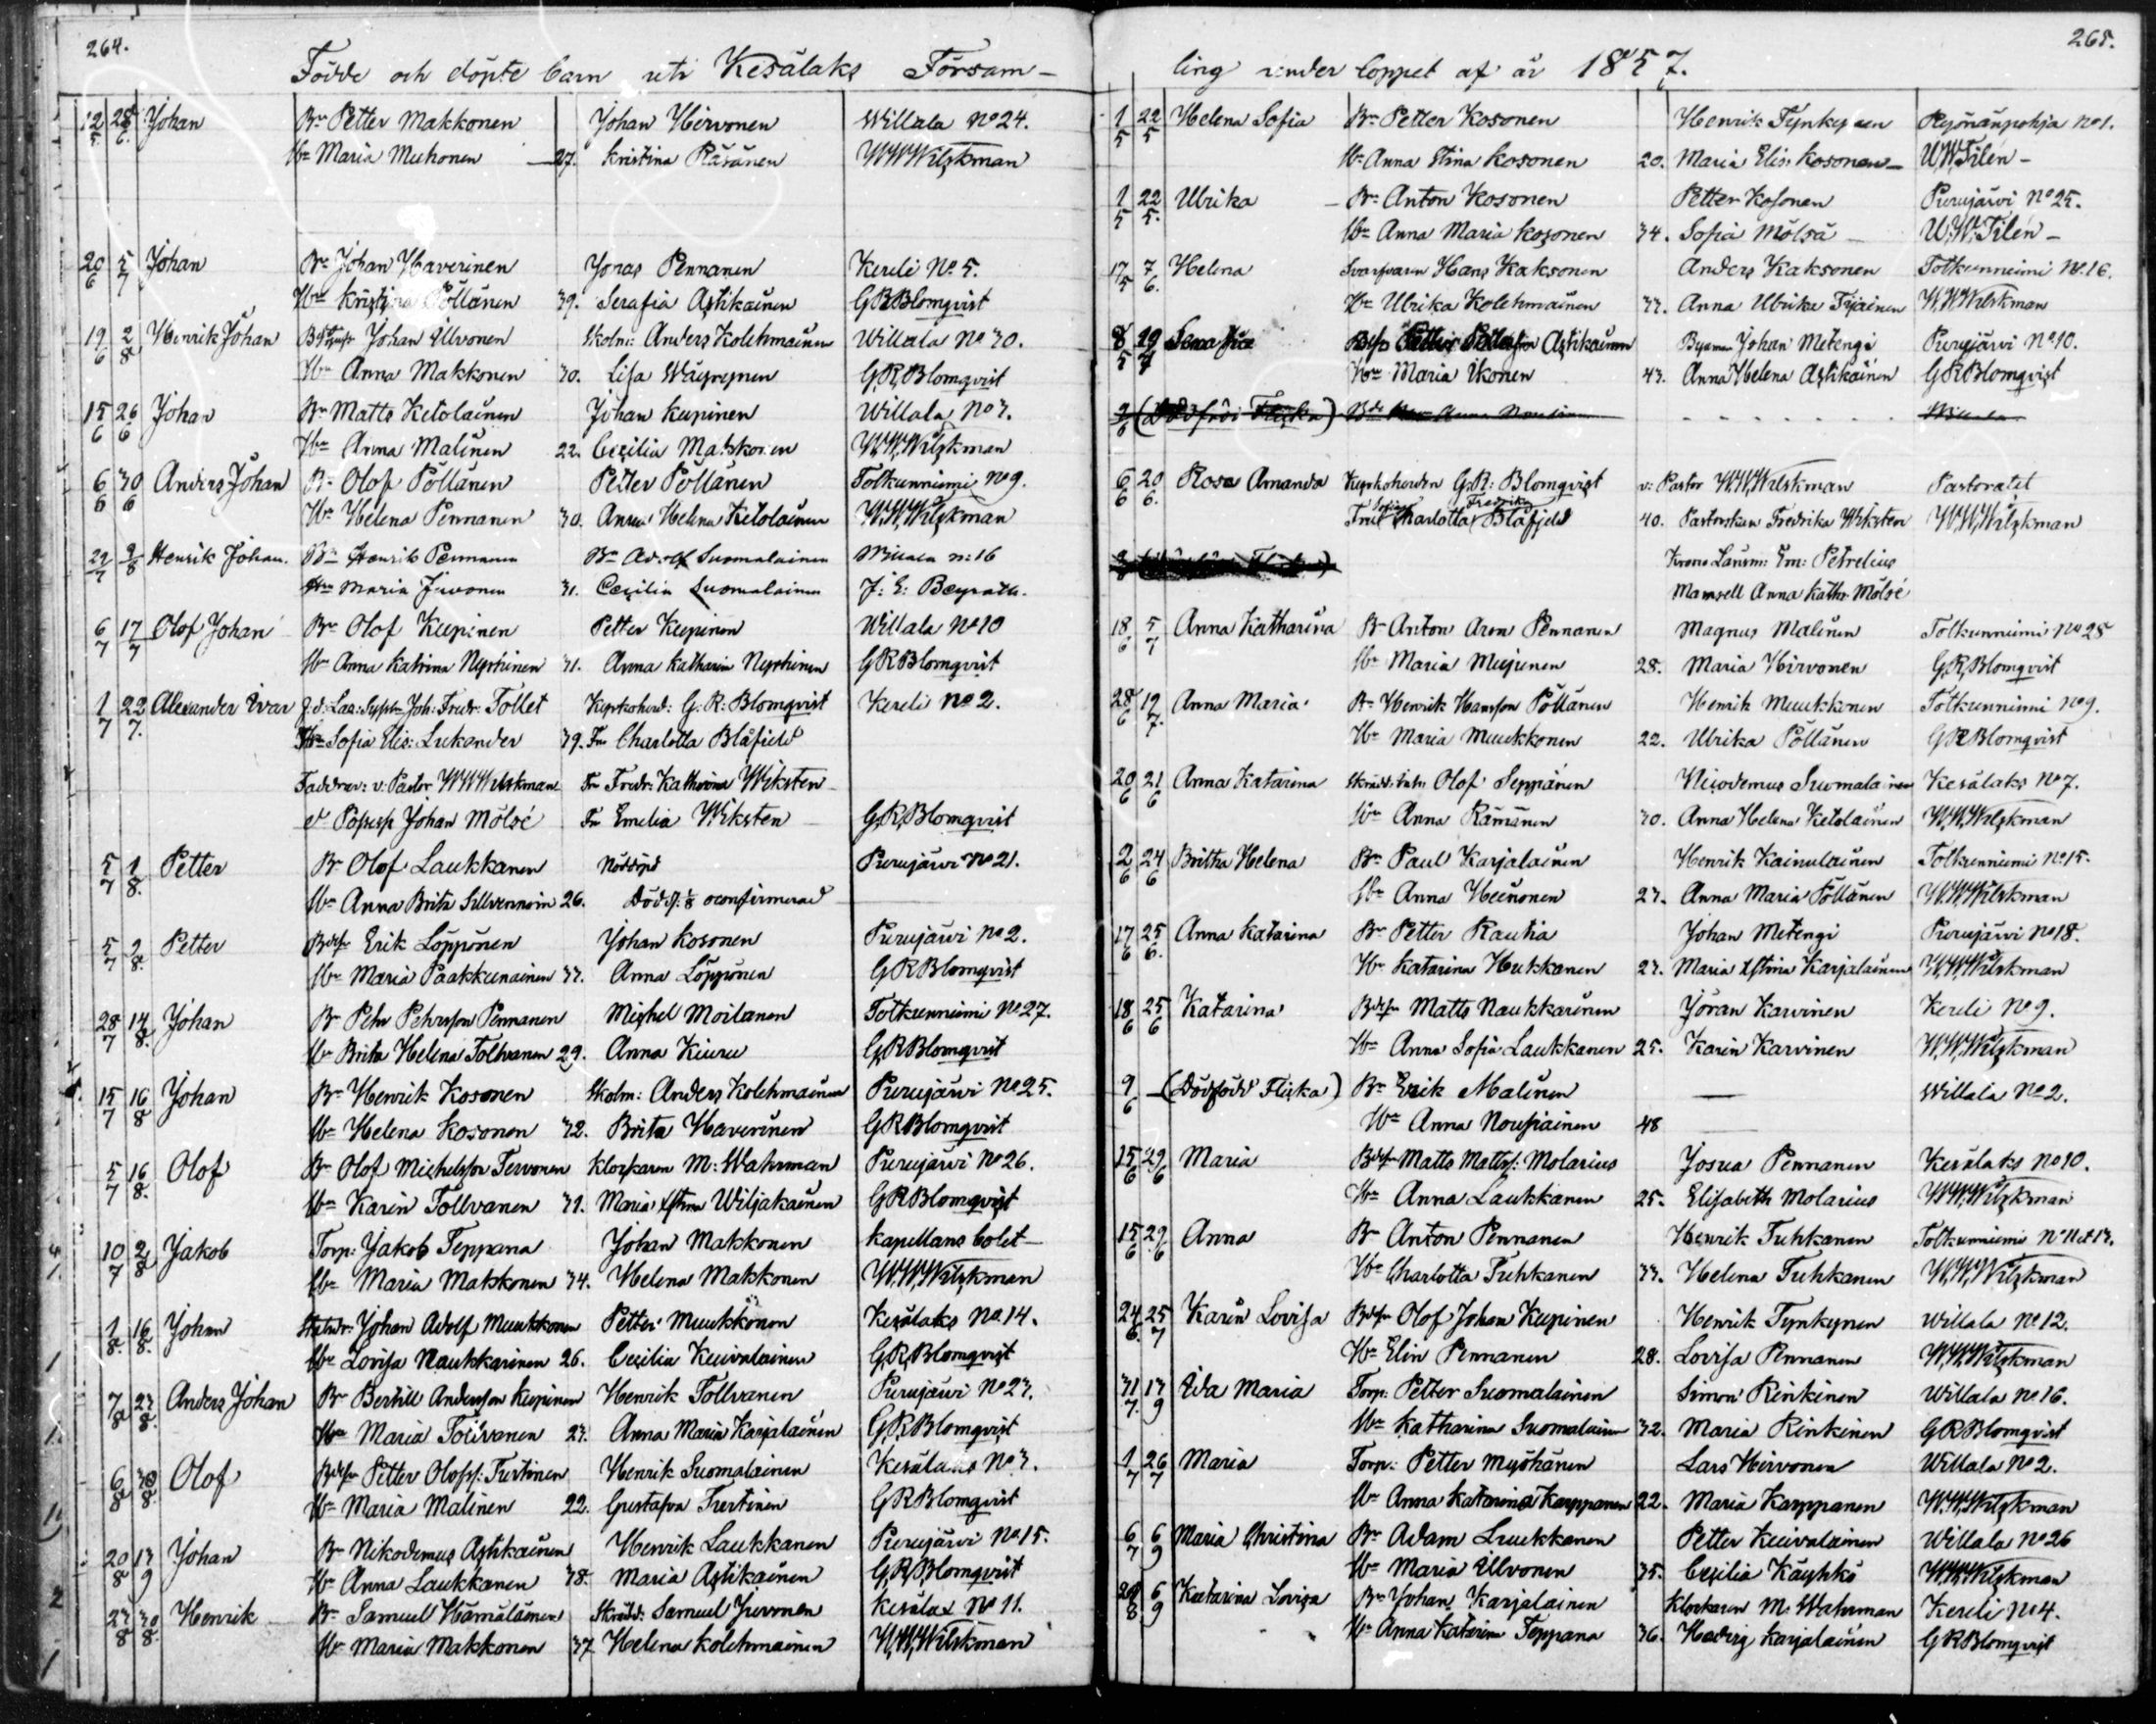 264.
Födde och döpte barn uti Kesälaks Försam-
12/5 28/6 Johan Bn Petter Makkonen Johan Hirvonen Willala No 24.
Hn Maria Muhonen 27. Kristina Räsänen W.W.Wilskman
20/6 5/7 Johan Bn Johan Haverinen Jonas Pennanen Kereli No 5.
Hn Kristina Pöllänen 39. Serafia Astikainen G.R.Blomqvist
19/6 2/8 Henrik Johan Johan Ulvonen Skolm: Anders Kolehmainen Willala No 30.
Hn Anna Makkonen 30. Lisa Wäyrynen G.R.Blomqvist
15/6 26/6 Johan Bn Matts Ketolainen Johan Kupinen Willala No 3.
Hn Anna Malinen 22. Cecilia Makkonen W.W.Wilskman
6/6 30/6 Anders Johan Bn Olof Pöllänen Petter Pöllänen Totkunniemi No 9.
Hn Helena Pennanen 30. Anna Helena Ketolainen W.W.Wilskman
22/7 9/8 Henrik Johan. Bn Henrik Pennanen Bn Adolf Suomalainen Willala n:16
Hn Maria Juvonen 31. Cecilia Suomalainen J: E: Beyrath.
6/7 17/7 Olof Johan Bn Olof Kupinen Petter Kupinen Willala No 10
Hn Anna Katrina Nyrhinen 31. Anna Katharin Nyrhinen G.R.Blomqvist
1/7 22/7. Alexander Ivar Joh: Fredr: Tollet Kyrkoherd: G: R: Blomqvist Kereli No 2.
Sofia Elis: Lukander 39. Fru Charlotta Blåfield
Faddrar: v: Pastor W.W.Wilskman Fr Fredr: Katharina Wiksten
Johan Mölsé Fr Emelia Wiksten G.R.Blomqvist
5/7 1/8. Petter Bn Olof Laukkanen Nöddöpt Purujärvi No 21.
Hn Anna Brita Silvennoin 26. oconfirmerad
5/7 2/8. Petter Erik Löppönen Johan Kosonen Purujärvi No 2.
Hn Maria Paakkunainen 33. Anna Löppönen G.R.Blomqvist
28/7 14/8. Johan Bn Pehr Pehrsson Pennanen Michel Moilanen Totkunniemi No 27.
Hn Brita Helena Tolvanen 29. Anna Kiuru G.R.Blomqvist
15/7 16/8 Johan Bn Henrik Kosonen Skolm: Anders Kolehmainen Purujärvi No 25.
Hn Helena Kosonen 32. Brita Haverinen G.R.Blomqvist
5/7 16/8. Olof Bn Olof Michelsson Tervonen Klockaren M: Wahrman Purujärvi No 26.
Hn Karin Tollvanen Maria Stina Wiljakainen G.R.Blomqvist
10/7 2/8 Jakob Torp: Jakob Teppana Johan Makkonen Kapellans bolet-
Hn Maria Makkonen 34. Helena Makkonen W.W.Wilskman
1/8. 16/8. Johan Johan Adolf Muukkonen Petter Muukkonen Kesälaks No 14.
Hn Lovisa Naukkarinen 26. Cecilia Kuivalainen G.R.Blomqvist
7/8 23/8. Anders Johan Bn Bertill Andersson Kupinen Henrik Tollvanen Purujärvi No 23.
Hn Maria Toivanen 23. Anna Maria Karjalainen G.R.Blomqvist
6/8 30/8. Olof Petter Olofss: Turtinen Henrik Suomalainen Kesälaks No 3.
Hn Maria Malinen 22. Gustafva Turtinen G.R.Blomqvist
20/8 13/9 Johan Bn Nikodemus Astikainen Henrik Laukkanen Purujärvi No 15.
Hn Anna Laukkanen 38. Maria Astikainen G.R.Blomqvist
23/8 30/8. Henrik Bn Samuel Hämäläinen Skradd: Samuel Juvonen Kesälax No 11.
Hn Maria Makkonen 37 Helena Kolehmainen W.W.Wilskman
265.
ling under loppet af år 1857.
1/5 22/5 Helena Sofia Bn Petter Kosonen Henrik Tynkynen No 1.
Hn Anna Stina Kosonen 20. Maria Elis: Kosonen W.W.Tilén-
1/5 22/5. Ulrika Bn Anton Kosonen Petter Kosonen Purujärvi No 25.
Hn Anna Maria Kosonen 34. Sofia Mölsä W.W.Tilén-
17/5 7/6. Helena Svarfvaren Hans Kaksonen Anders Kaksonen Totkunniemi No 16.
Hn Ulrika Kolehmainen 33. Anna Ulrika Tiainen W.W.Wilskman
Astikainen Johan Metengi Purujärvi No 10.
Hn Maria Ikonen 43. Anna Helena Astikainen G.R.Blomqvist
(Dödfödd Flicka) Willala
6/6 20/6. Rosa Amanda Kyrkoherden G: R: Blomqvist v: Pastor W.W.Wilskman Pastoratet
Fru Sofia Charlotta Fredrika Blåfield 40. Pastorskan Fredrika Wiksten W.W.Wilskman
Krono Länsm: Em: Petrelius
Mamsell Anna Kathr: Mölsé
18/6 5/7 Anna Katharina Bn Anton Aron Pennanen Magnus Malinen Totkunniemi No 28
Hn Maria Mujunen 28. Maria Hirvonen G.R.Blomqvist
28/6 19/7. Anna Maria Bn Henrik Hansson Pöllänen Henrik Muukkonen Totkunniemi No 9.
Hn Maria Muukkonen 22. Ulrika Pöllänen G.R.Blomqvist
20/6 21/6 Anna Katarina Olof Seppänen Nicodemus Suomalainen Kesälaks No 7.
Hn Anna Rämänen 30. Anna Helena Ketolainen W.W.Wilskman
2/6 24/6 Britha Helena Bn Paul Karjalainen Henrik Kainulainen Totkunniemi No 15.
Hn Anna Heinonen 27. Anna Maria Pöllänen W.W.Wilskman
17/6 25/6. Anna Katarina Bn Petter Rautia Johan Metengi Purujärvi No 18.
Hn Katarina Hukkanen 27. Maria Stina Karjalainen W.W.Wilskman
18/6 25/6 Katarina Matts Naukkarinen Jöran Karvinen Kereli No 9.
Hn Anna Sofia Laukkanen 25. Karin Karvinen W.W.Wilskman
9/6 (Dödfödd Flicka) Bn Erik Malinen Willala No 2.
Hn Anna Nousiainen 48
15/6 29/6 Maria Matts Mattss: Molarius Josua Pennanen Kesälaks No 10.
Hn Anna Laukkanen 25. Elisabeth Molarius W.W.Wilskman
15/6 29/6 Anna Bn Anton Pennanen Henrik Tuhkanen Totkunniemi No 11 et 13.
Hn Charlotta Tuhkanen 33. Helena Tuhkanen W.W.Wilskman
24/6. 25/7 Karin Lovisa Olof Johan Kupinen Henrik Tynkynen Willala No 12.
Hn Elin Pennanen 28. Lovisa Pennanen W.W.Wilskman
31/7. 13/9 Ida Maria Torp: Petter Suomalainen Simon Rinkinen Willala No 16.
Hn Katharina Suomalainen 32. Maria Rinkinen G.R.Blomqvist
1/7 26/7 Maria Torp: Petter Myöhänen Lars Hirvonen Willala No 2.
Hn Anna Katarina Karppanen 22. Maria Karppanen W.W.Wilskman
6/7 6/9 Maria Christina Bn Adam Luukkanen Petter Kuivalainen Willala No 26
Hn Maria Ulvonen 35. Cecilia Käyhkö W.W.Wilskman
6/9 Katarina Lovisa Bn Johan Karjalainen Klockaren M: Wahrman Kereli No 4.
Hn Anna Katarina Teppana 36. Hedvig Karjalainen G.R.Blomqvist